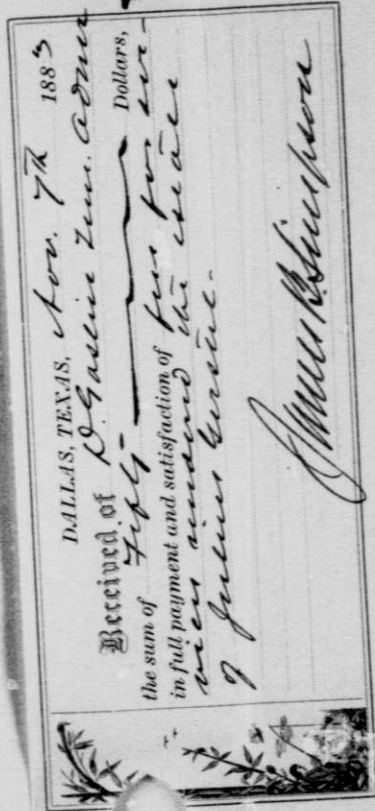 DALLAS, TEXAS, Nov. 7th 1883
Received of D. Temp. Admr
the sum of Fifty Dollars,
in full payment and satisfaction of fees for ser-
vices rendered the estate
of Julius
James B. Simpson